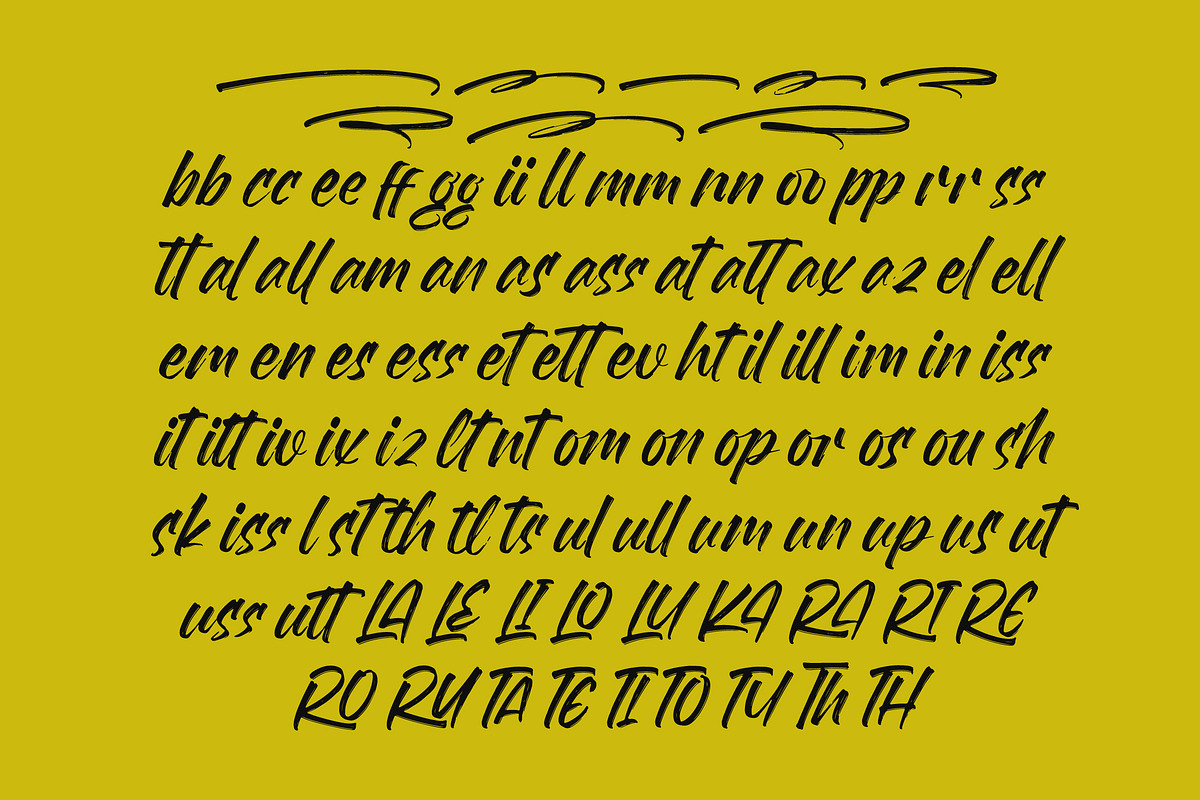 bb cc ee ff gg ii ll mm nn oo pp rr ss
tt al all am an as ass at att ax az el ell
em en es ess et ett ev ht il ill im in iss
it itt iv ix iz lt nt om on op or os ou sh
sk iss l st th tl ts ul ull um un up us ut
uss utt LA LE LI LO LU KA RA RI RE
RO RU TA TE TI TO TU Th TH